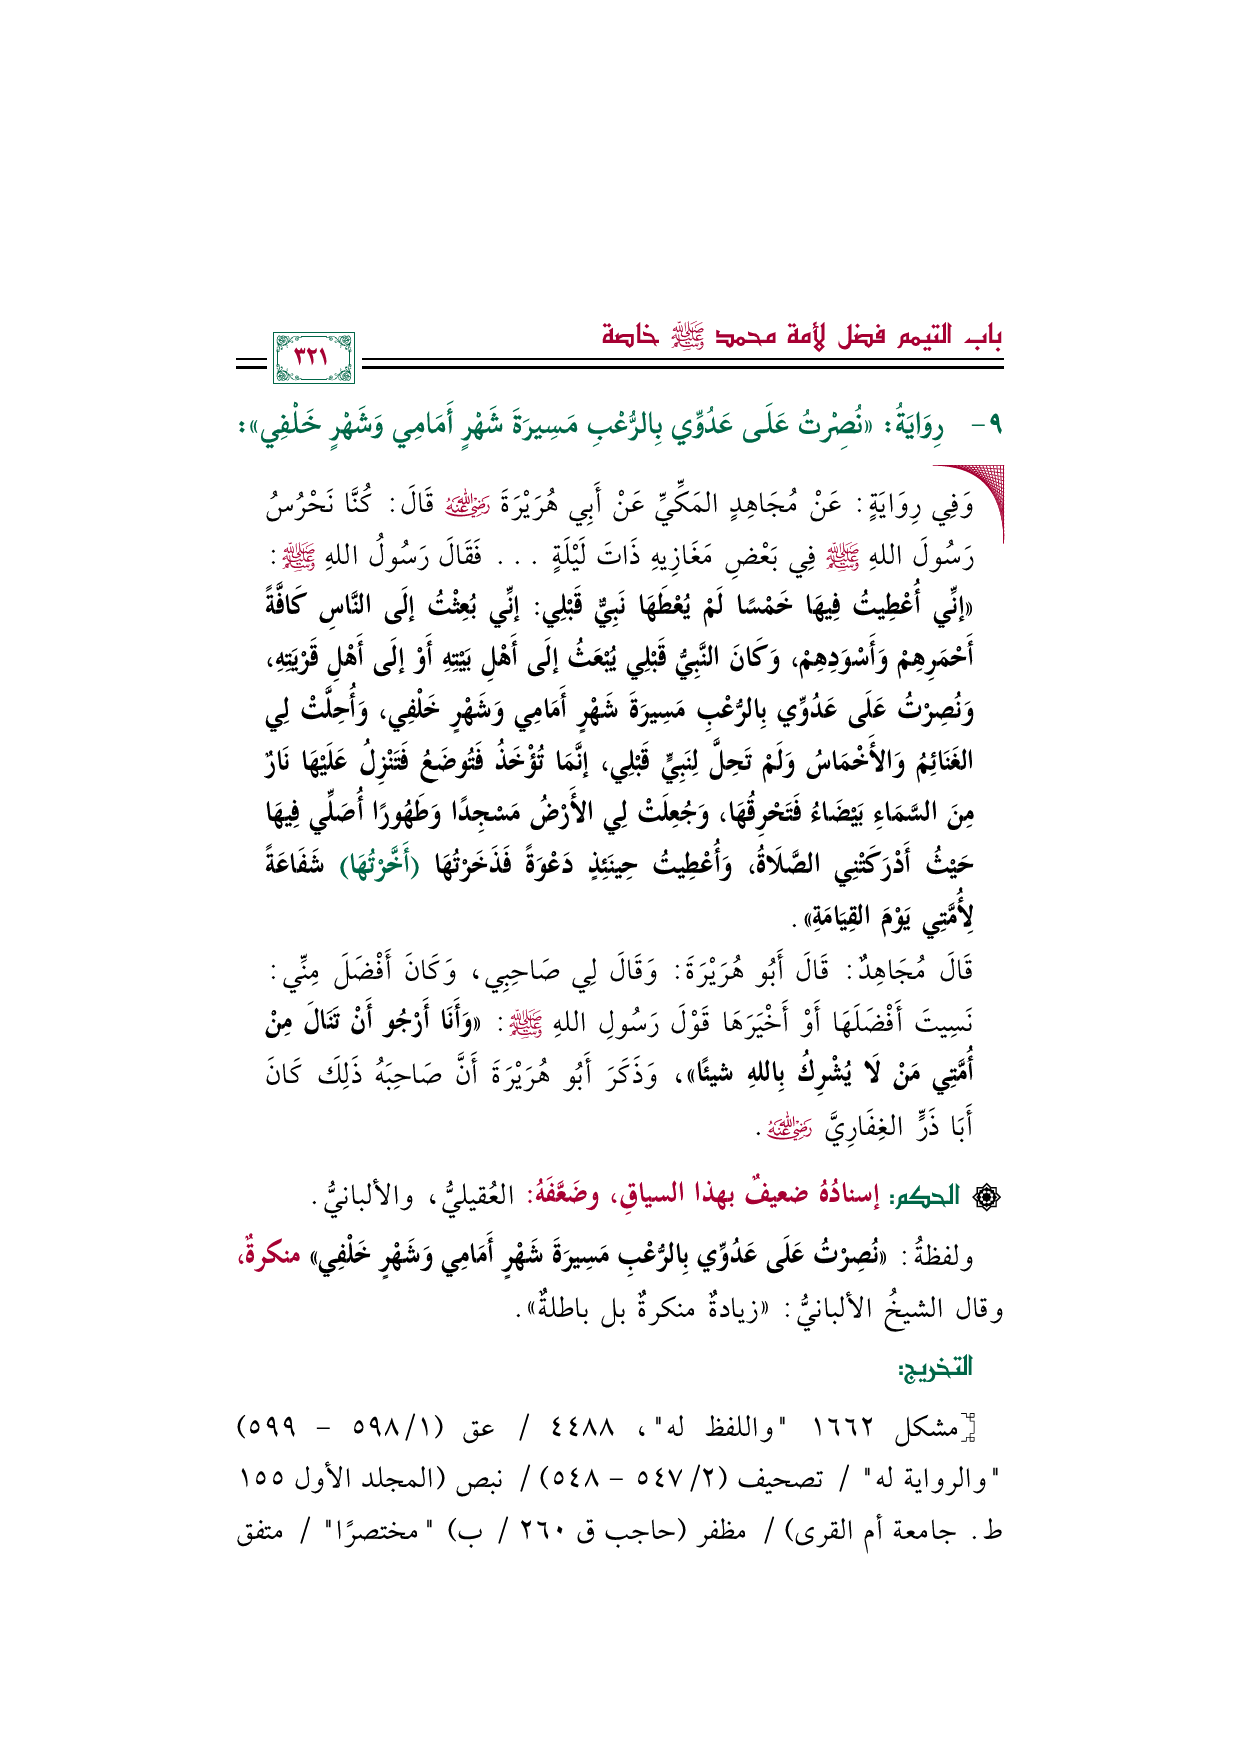 باب التيمم فضل لأمة محمد ﷺ خاصة
٣٢١
٩- رِوَايَةُ: «نُصِرْتُ عَلَى عَدُوِّي بِالرُّعْبِ مَسِيرَةَ شَهْرٍ أَمَامِي وَشَهْرٍ خَلْفِي»:
وَفِي رِوَايَةٍ: عَنْ مُجَاهِدٍ المَكِّيِّ عَنْ أَبِي هُرَيْرَةَ رضي الله عنه قَالَ: كُنَّا نَحْرُسُ
رَسُولَ اللهِ ﷺ فِي بَعْضِ مَغَازِيهِ ذَاتَ لَيْلَةٍ . . . فَقَالَ رَسُولُ اللهِ ﷺ:
«إنِّي أُعْطِيتُ فِيهَا خَمْسًا لَمْ يُعْطَهَا نَبِيٌّ قَبْلِي: إنِّي بُعِثْتُ إلَى النَّاسِ كَافَّةً
أَحْمَرِهِمْ وَأَسْوَدِهِمْ، وَكَانَ النَّبِيُّ قَبْلِي يُبْعَثُ إلَى أَهْلِ بَيْتِهِ أَوْ إلَى أَهْلِ قَرْيَتِهِ،
وَنُصِرْتُ عَلَى عَدُوِّي بِالرُّعْبِ مَسِيرَةَ شَهْرٍ أَمَامِي وَشَهْرٍ خَلْفِي، وَأُحِلَّتْ لِي
الغَنَائِمُ وَالأَخْمَاسُ وَلَمْ تَحِلَّ لِنَبِيٍّ قَبْلِي، إنَّمَا تُؤْخَذُ فَتُوضَعُ فَتَنْزِلُ عَلَيْهَا نَارٌ
مِنَ السَّمَاءِ بَيْضَاءُ فَتَحْرِقُهَا، وَجُعِلَتْ لِي الأَرْضُ مَسْجِدًا وَطَهُورًا أُصَلِّي فِيهَا
حَيْثُ أَدْرَكَتْنِي الصَّلَاةُ، وَأُعْطِيتُ حِينَئِذٍ دَعْوَةً فَذَخَرْتُهَا (أَخَّرْتُهَا) شَفَاعَةً
لِأُمَّتِي يَوْمَ القِيَامَةِ».
قَالَ مُجَاهِدٌ: قَالَ أَبُو هُرَيْرَةَ: وَقَالَ لِي صَاحِبِي، وَكَانَ أَفْضَلَ مِنِّي:
نَسِيتَ أَفْضَلَهَا أَوْ أَخْيَرَهَا قَوْلَ رَسُولِ اللهِ ﷺ: «وَأَنَا أَرْجُو أَنْ تَنَالَ مِنْ
أُمَّتِي مَنْ لَا يُشْرِكُ بِاللهِ شيئًا»، وَذَكَرَ أَبُو هُرَيْرَةَ أَنَّ صَاحِبَهُ ذَلِكَ كَانَ
أَبَا ذَرٍّ الغِفَارِيَّ رضي الله عنه.
الحكم: إسنادُهُ ضعيفٌ بهذا السياقِ، وضَعَّفَهُ: العُقيليُّ، والألبانيُّ.
ولفظةُ: «نُصِرْتُ عَلَى عَدُوِّي بِالرُّعْبِ مَسِيرَةَ شَهْرٍ أَمَامِي وَشَهْرٍ خَلْفِي» منكرةٌ،
وقال الشيخُ الألبانيُّ: «زيادةٌ منكرةٌ بل باطلةٌ».
التخريج:
[مشكل ١٦٦٢ "واللفظ له"، ٤٤٨٨ / عق (١/ ٥٩٨ - ٥٩٩)
"والرواية له" / تصحيف (٢/ ٥٤٧ - ٥٤٨) / نبص (المجلد الأول ١٥٥
ط. جامعة أم القرى) / مظفر (حاجب ق ٢٦٠ / ب) "مختصرًا" / متفق